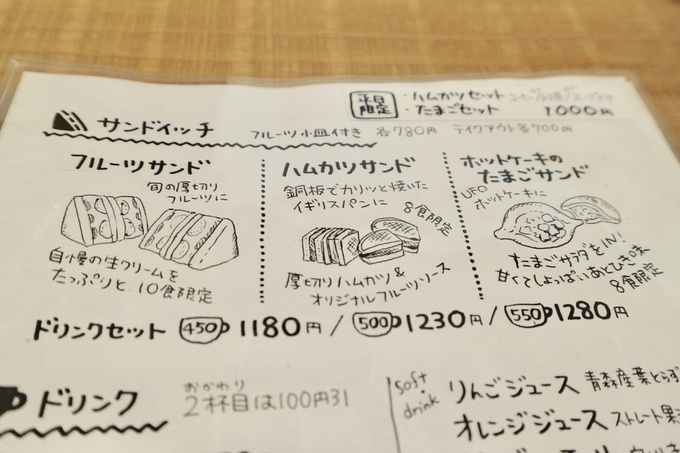 平日限定
・ハムカツセット
・たまごセット 1000円
サンドイッチ フルーツ小皿付き 各780円 テイクアウト各700円
フルーツサンド
旬の厚切り
フルーツに
自慢の生クリームを
たっぷりと、10食限定
ハムカツサンド
銅板でカリッと焼いた
イギリスパンに
8食限定
厚切りハムカツ&
オリジナルフルーツソース
ホットケーキの
たまごサンド
UFO
ホットケーキに
たまごサラダをIN!
甘くてしょっぱいあとひき味
8食限定
ドリンクセット 450 1180円 / 500 1230円 / 550 1280円
ドリンク
おかわり
2杯目は100円引
soft drink
りんごジュース 青森産葉とらず
オレンジジュース ストレート果